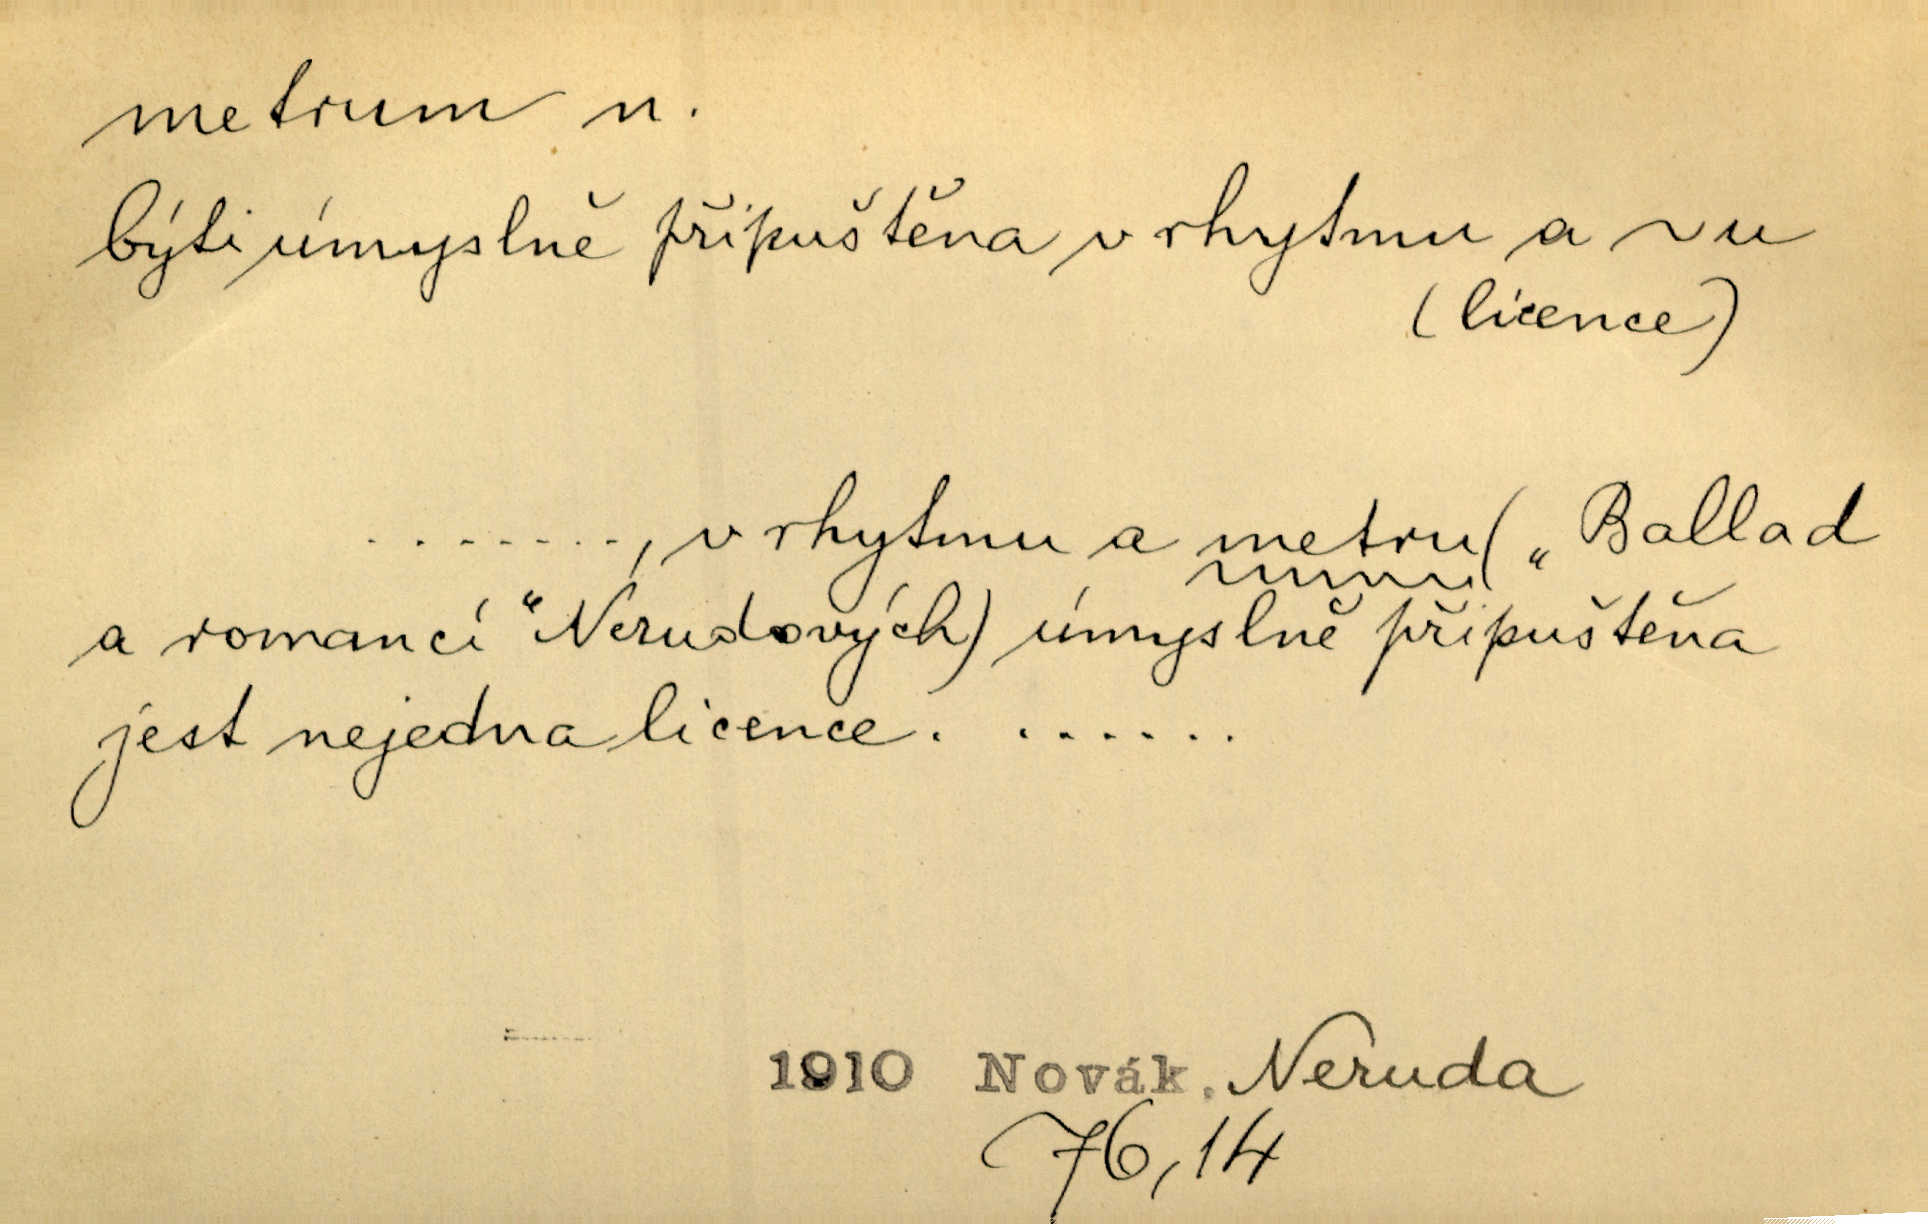 metrum n.
býti úmyslně připuštěna v rhytmu a ~u
(licence)
. . . . . . . ., v rhytmu a metru („Ballad
a romancí“ Nerudových) úmyslně připuštěna
jest nejedna licence. . . . . . .
1910 Novák. Neruda
76,14